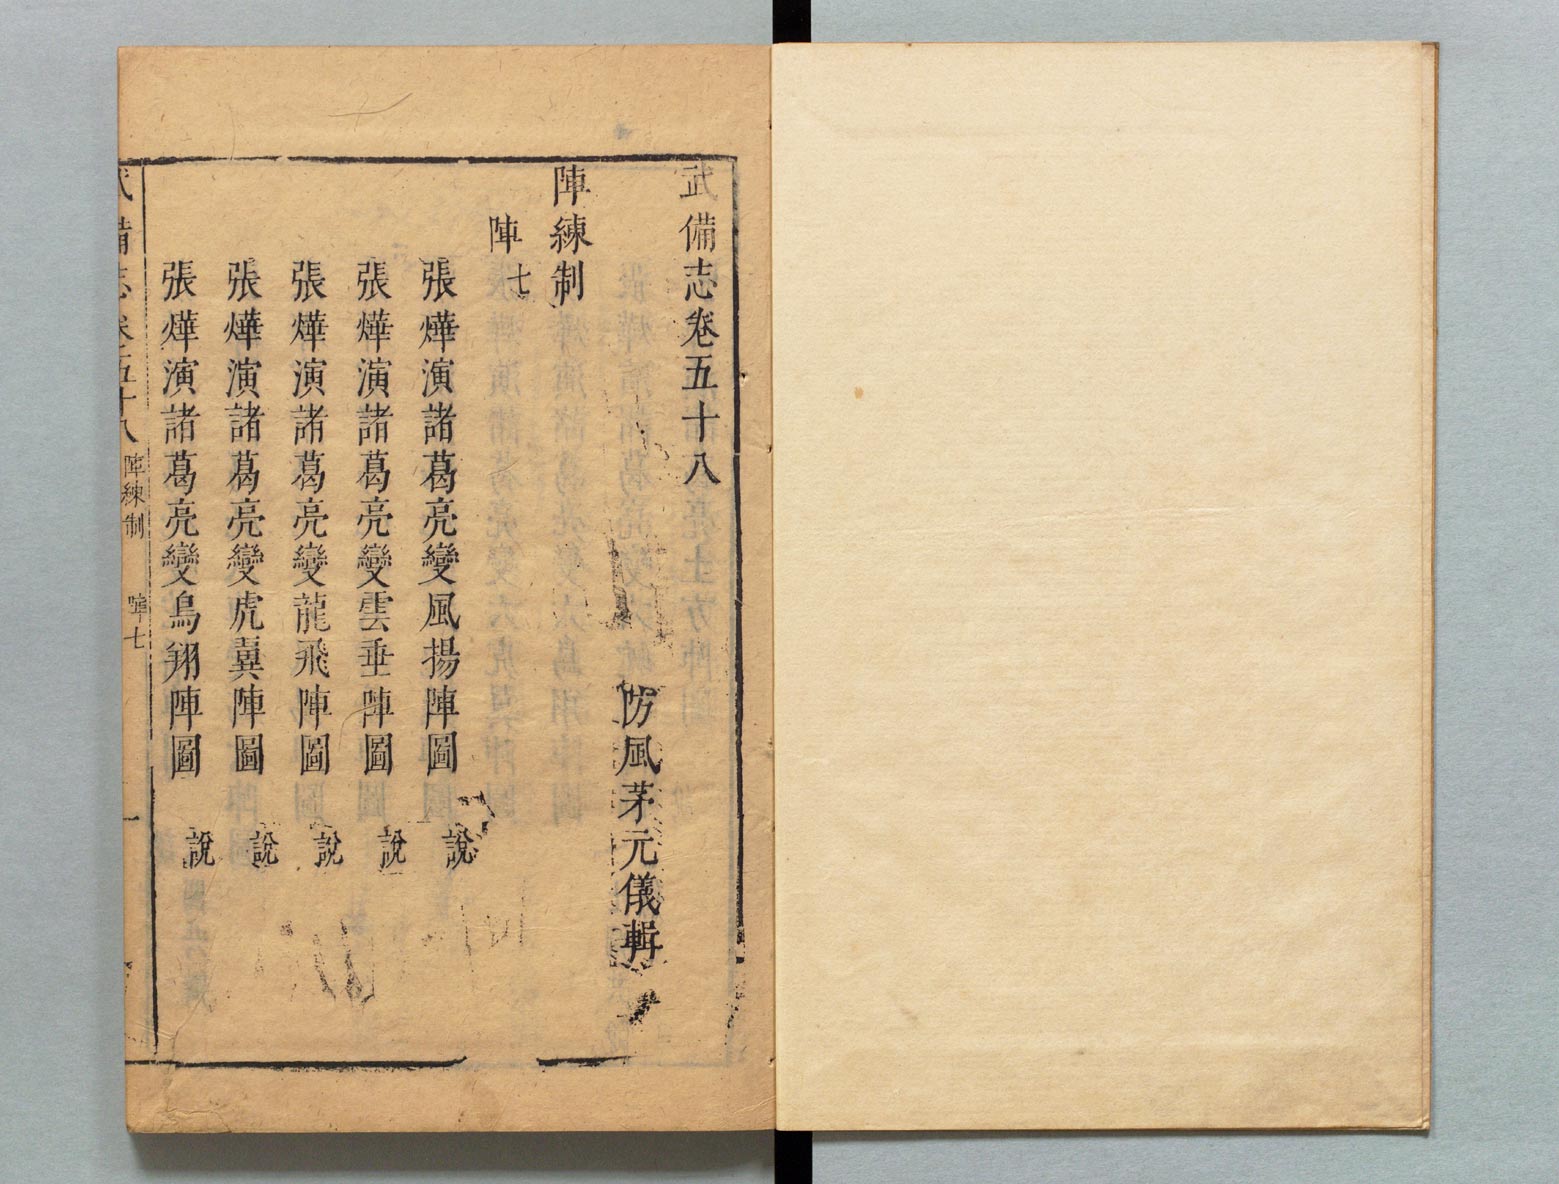 武備志卷五十八
防風茅元儀輯
陣練制
陣七
張燁演諸葛亮變風揚陣圖 說
張燁演諸葛亮變雲垂陣圖 說
張燁演諸葛亮變龍飛陣圖 說
張燁演諸葛亮變虎翼陣圖 說
張燁演諸葛亮變鳥翔陣圖 說
武備志卷五十八 陣練制 陣七 一